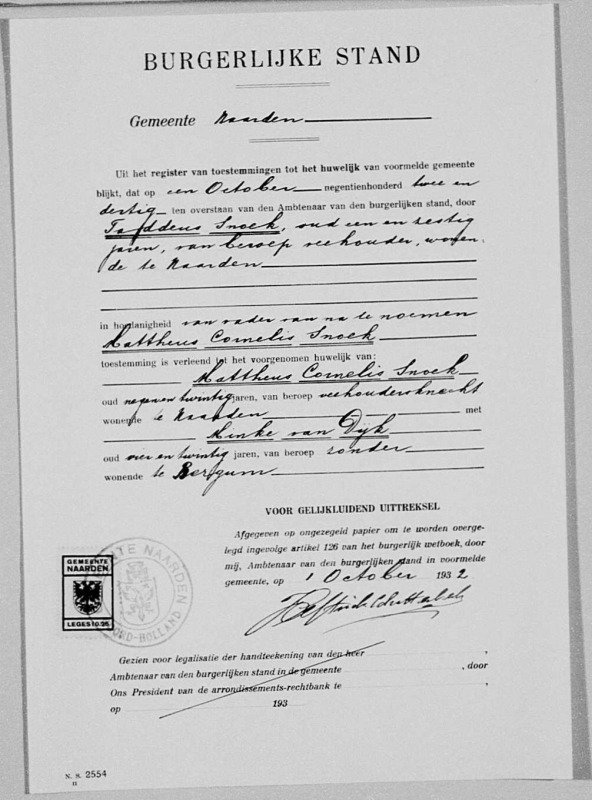 BURGERLIJKE STAND
Gemeente Naarden
Uit het register van toestemmingen tot het huwelijk van voormelde gemeente
blijkt, dat op een October negentienhonderd twee en
dertig ten overstaan van den Ambtenaar van den burgerlijken stand, door
Taddeus Snoek, oud een en zestig
jaren, van beroep veehouder, wonen-
de te Naarden
in hoedanigheid van vader van na te noemen
Mattheus Cornelis Snoek
toestemming is verleend tot het voorgenomen huwelijk van:
Mattheus Cornelis Snoek
oud negen en twintig jaren, van beroep veehoudersknecht
wonende te Naarden met
Minke van Dijk
oud vier en twintig jaren, van beroep zonder
wonende te Bergum
VOOR GELIJKLUIDEND UITTREKSEL
Afgegeven op ongezegeld papier om te worden overge-
legd ingevolge artikel 126 van het burgerlijk wetboek, door
mij, Ambtenaar van den burgerlijken stand in voormelde
gemeente, op 1 October 1932
GEMEENTE
NAARDEN
LEGES
GEMEENTE NAARDEN
NOORD-HOLLAND
Gezien voor legalisatie der handteekening van den heer ,
Ambtenaar van den burgerlijken stand in de gemeente , door
Ons President van de arrondissements-rechtbank te ,
op 193
N. S. 2554
11